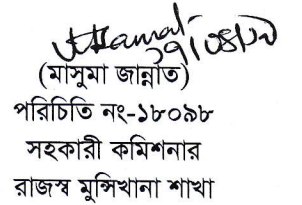 ২৭/০৪/১০
(মাসুমা জান্নাত)
পরিচিতি নং-১৮০৯৮
সহকারী কমিশনার
রাজস্ব মুন্সিখানা শাখা